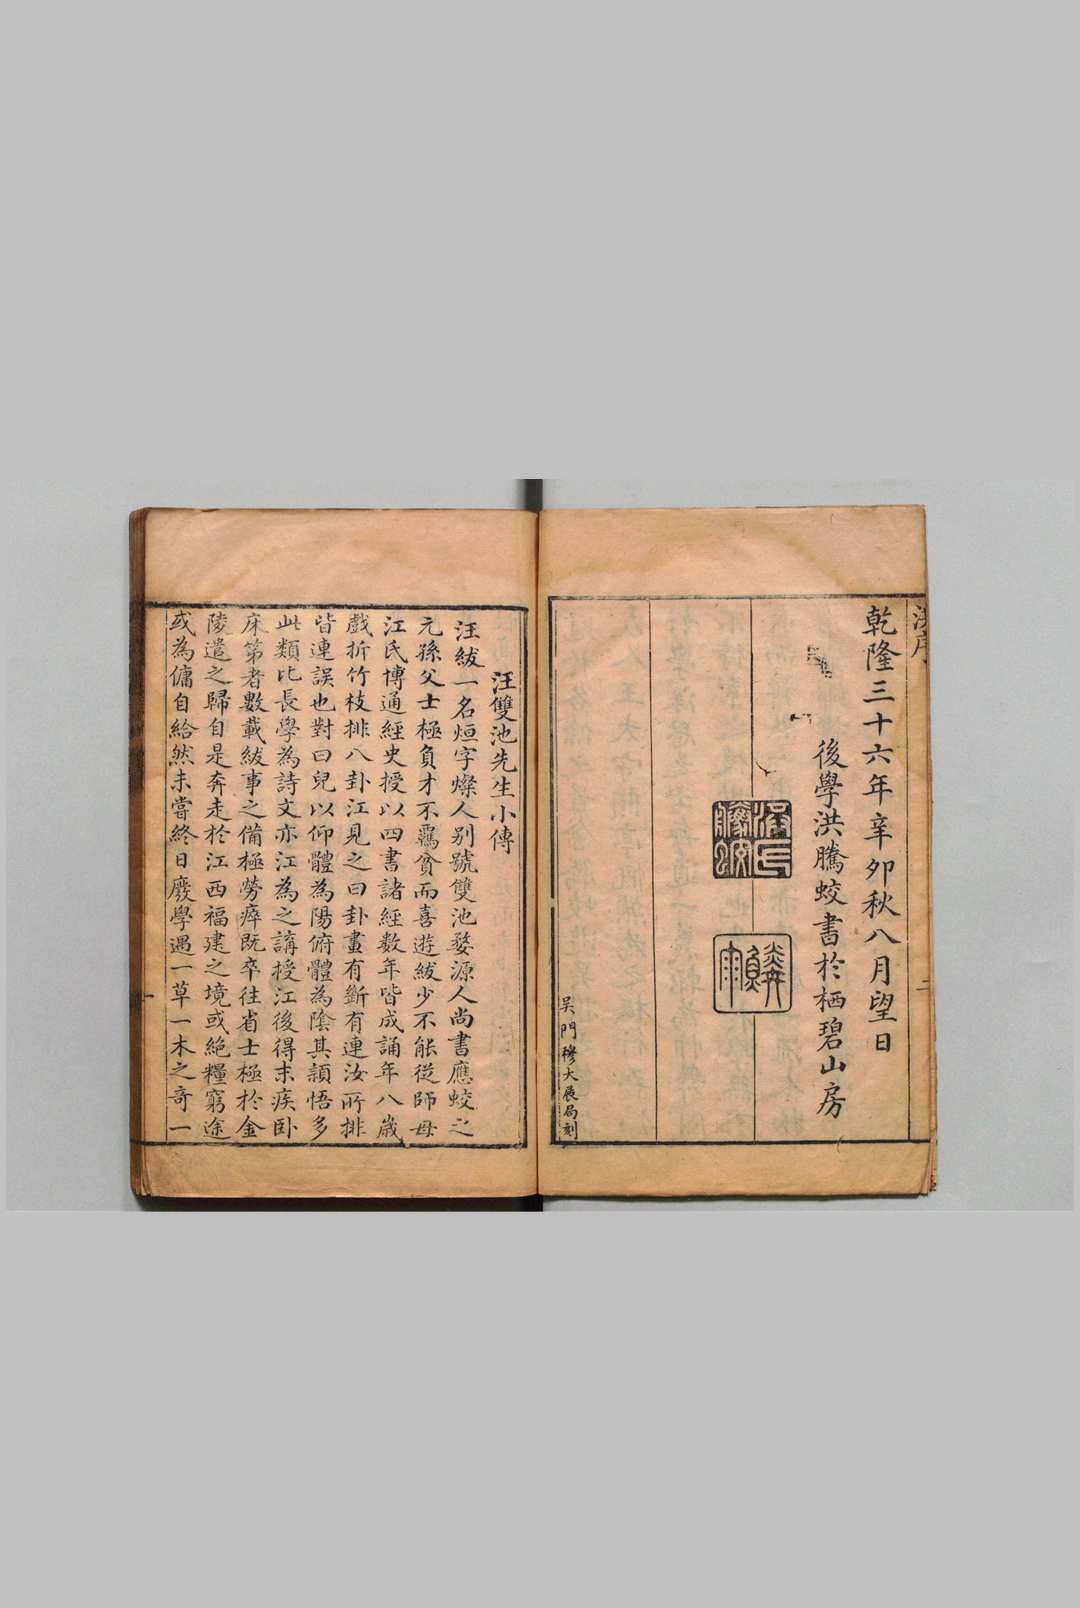 乾隆三十六年辛卯秋八月望日
後學洪騰蛟書於栖碧山房
洪氏騰蛟
鱗願
吳門穆大展局刻
汪雙池先生小傳
汪紱一名烜字燦人别號雙池婺源人尚書應蛟之
元孫父士極負才不羈貧而喜遊紱少不能從師母
江氏博通經史授以四書諸經數年皆成誦年八歲
戲折竹枝排八卦江見之曰卦畫有斷有連汝所排
皆連誤也對曰兒以仰體為陽俯體為陰其頴悟多
此類比長學為詩文亦江為之講授江後得末疾卧
床第者數載紱事之備極勞瘁既卒往省士極於金
陵遣之歸自是奔走於江西福建之境或絶糧窮途
或為傭自給然未嘗終日廢學遇一草一木之奇一